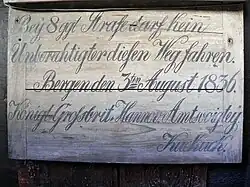 Bey 8 ggl Strafe darf kein
Unberechtigter diesen Weg fahren.
Bergen den 3ten August 1836.
Königl. Grosbrit. Hannov. Amtvoigtey